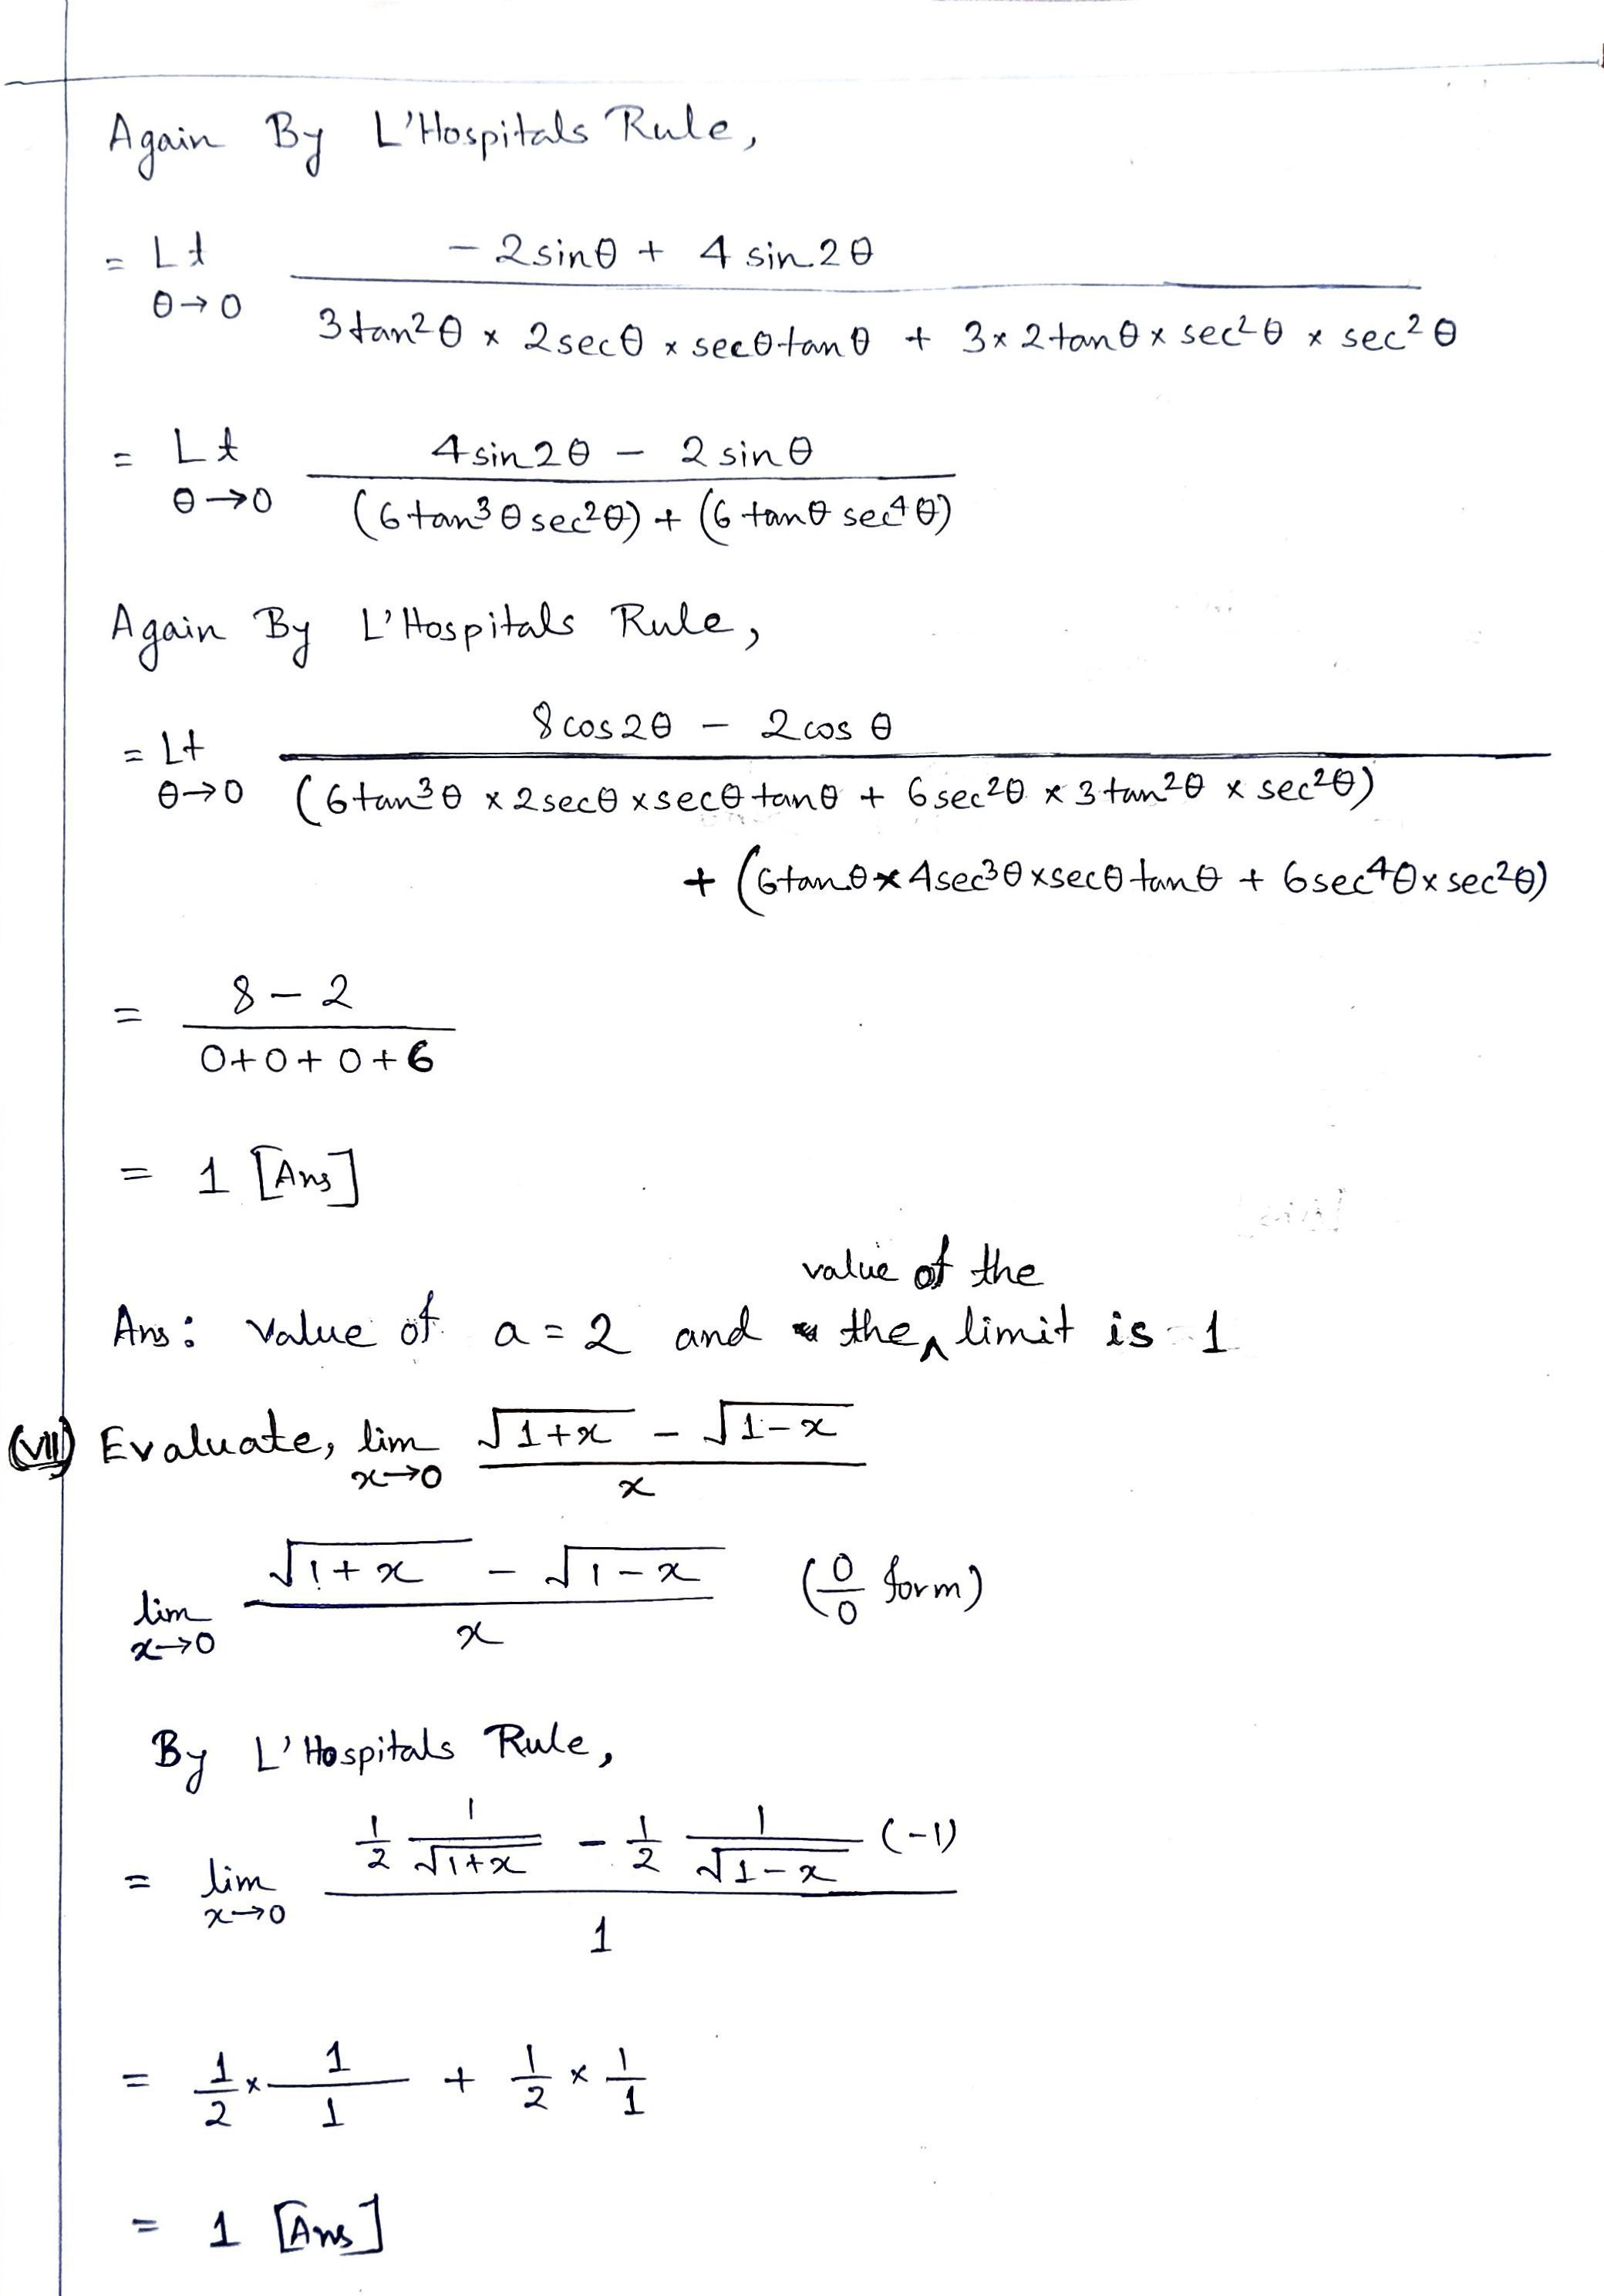 Again By L'Hospitals Rule,
= Lt θ→0 (-2sinθ + 4 sin2θ) / (3tan²θ × 2secθ × secθ tanθ + 3×2tanθ × sec²θ × sec²θ)
= Lt θ→0 (4sin2θ - 2sinθ) / ((6tan³θ sec²θ) + (6tanθ sec⁴θ))
Again By L'Hospitals Rule,
= Lt θ→0 (8cos2θ - 2cosθ) / (6tan³θ × 2secθ × secθ tanθ + 6sec²θ × 3tan²θ × sec²θ)
+ (6tanθ × 4sec³θ × secθ tanθ + 6sec⁴θ × sec²θ)
= (8-2) / (0+0+0+6)
= 1 [Ans]
Ans: Value of a = 2 and the value of the limit is 1
(VII) Evaluate, lim x→0 (√1+x - √1-x) / x
lim x→0 (√1+x - √1-x) / x (0/0 form)
By L'Hospitals Rule,
= lim x→0 (1/2 1/√1+x - 1/2 1/√1-x (-1)) / 1
= 1/2 × 1/1 + 1/2 × 1/1
= 1 [Ans]